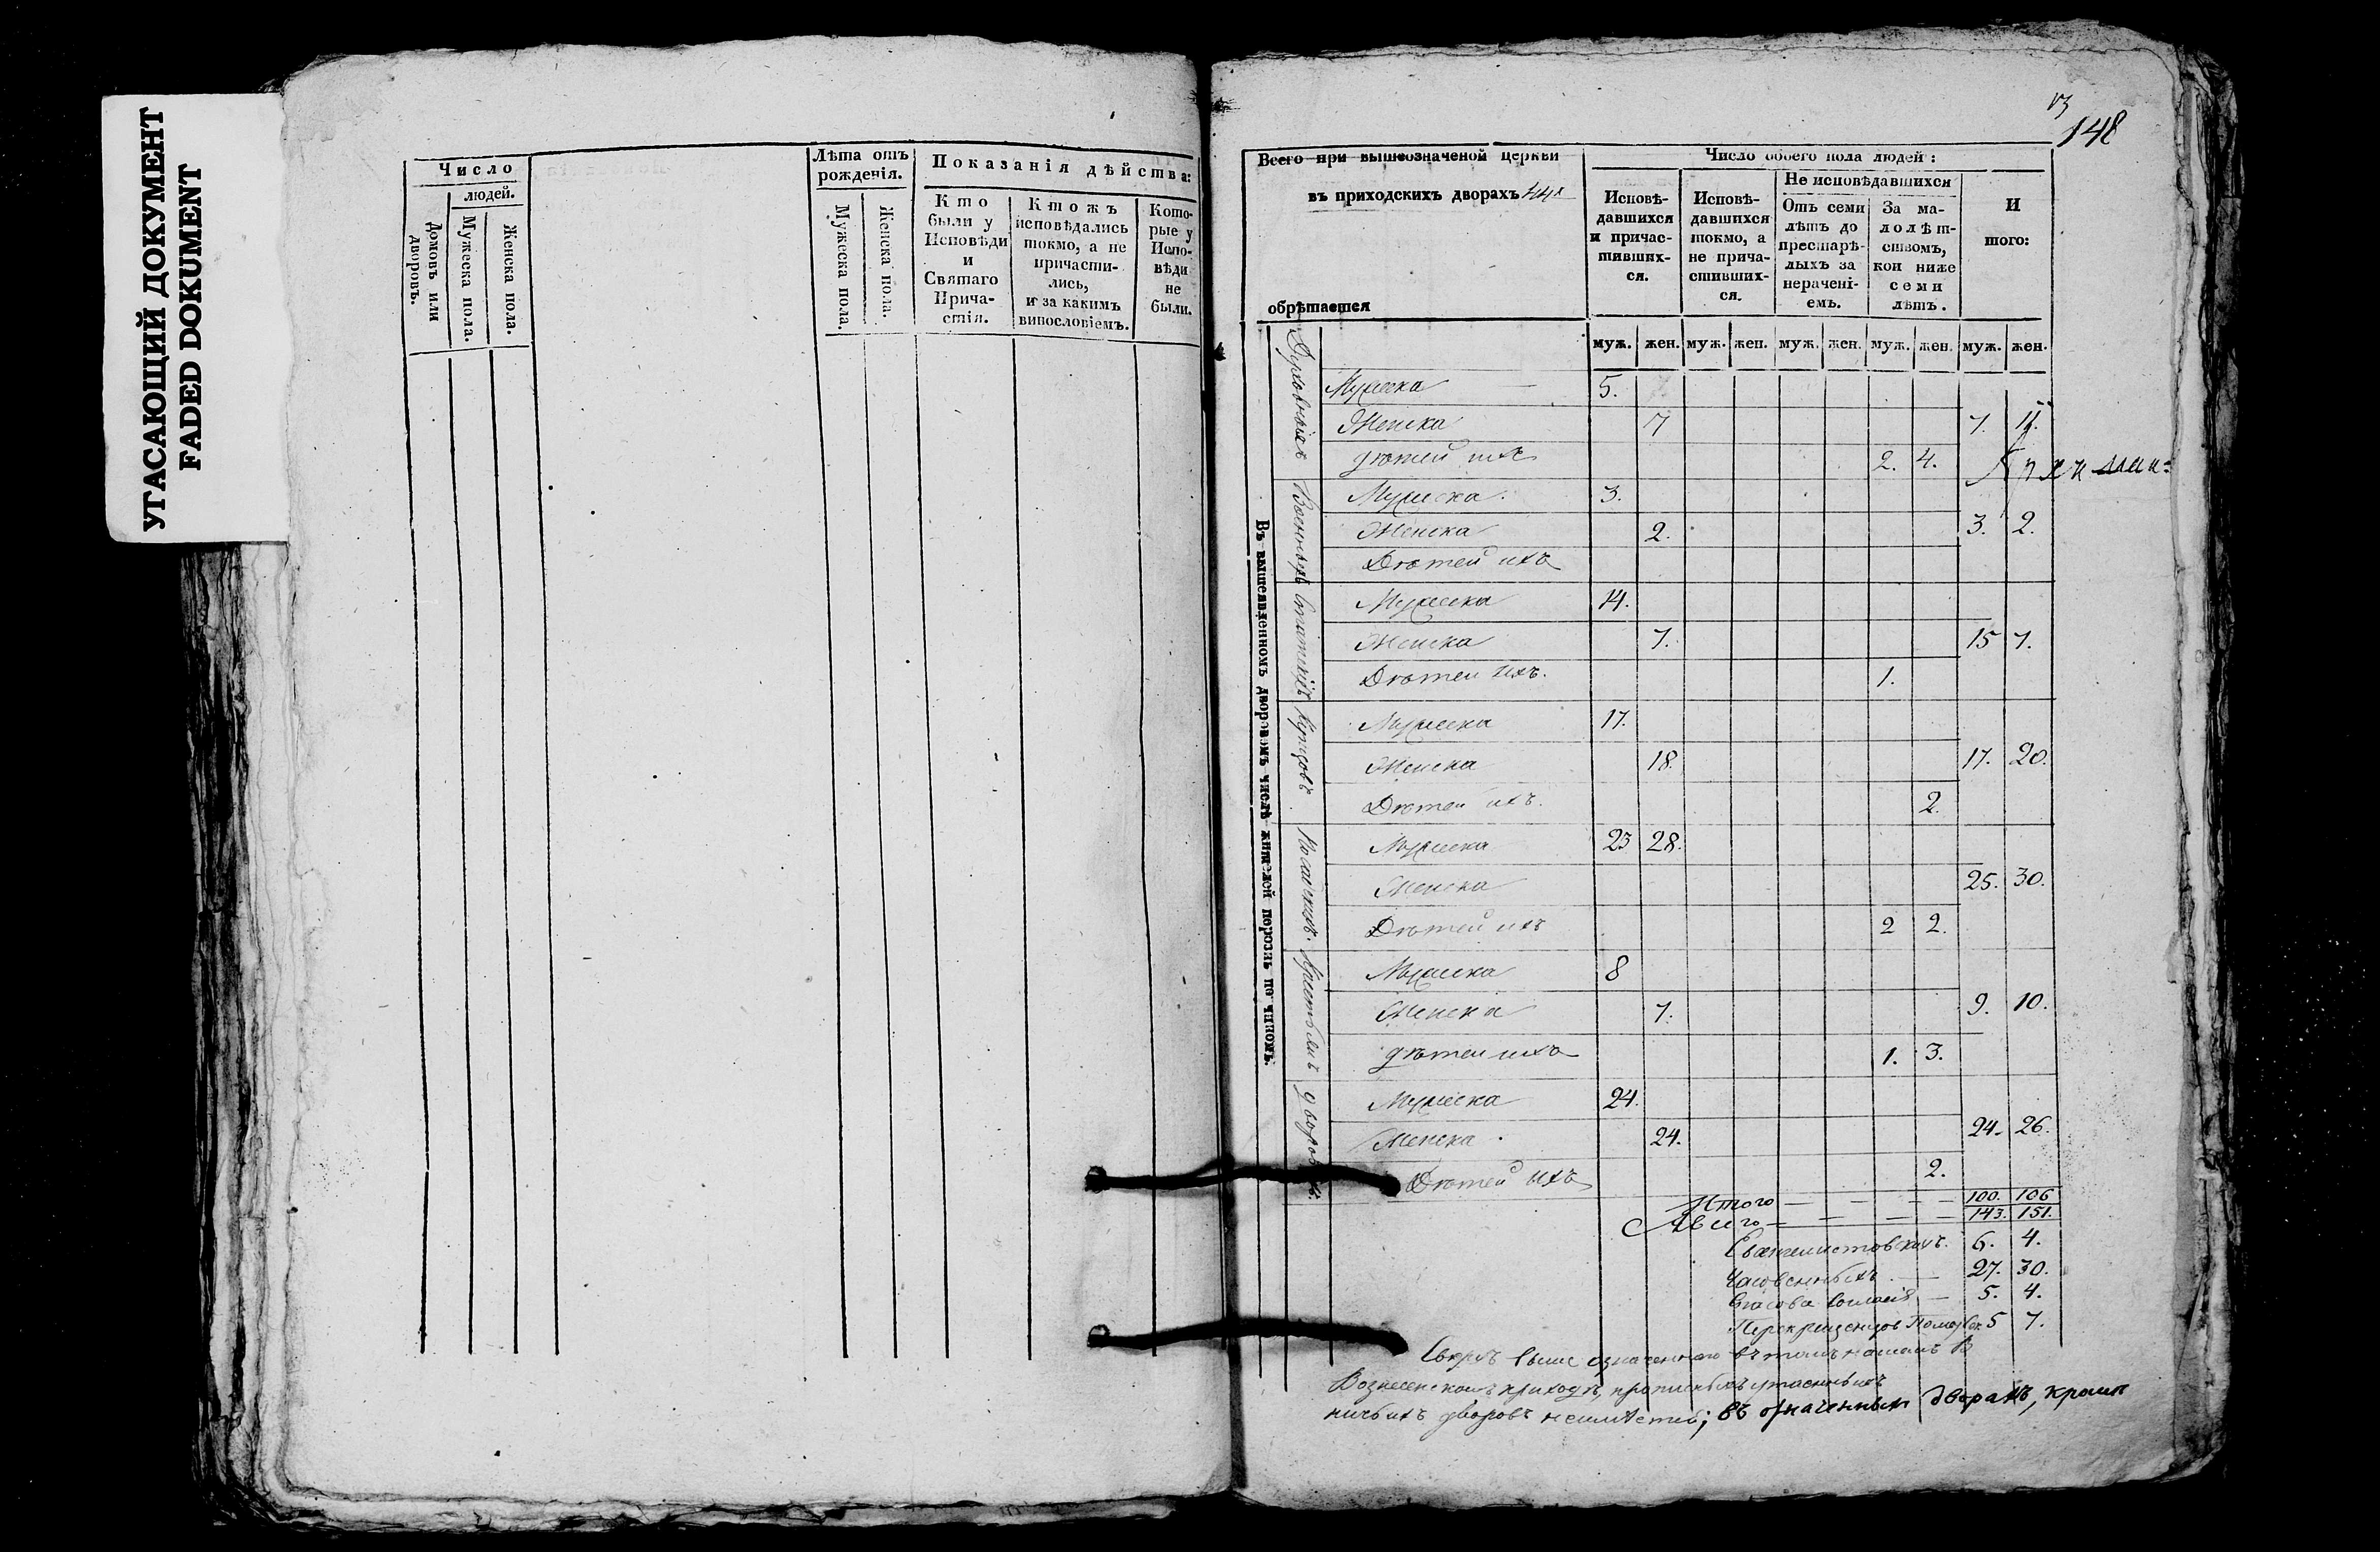 УГАСАЮЩИЙ ДОКУМЕНТ
FADED DOKUMENT
Число
людей.
Домовъ или дворовъ.
Мужеска пола.
Женска пола.
Лѣта отъ
рожденія.
Мужеска пола.
Женска пола.
Показанія дѣйства:
Кто
были у
Исповѣди
и
Святаго
Прича-
стія.
Ктожъ
исповѣдались
токмо, а не
причасти-
лись,
и за какимъ
винословіемъ.
Кото-
рые у
Испо-
вѣди
не
были.
148
Всего при вышеозначеной церкви
въ приходскихъ дворахъ
обрѣтается
Число обоего пола людей:
Исповѣ-
давшихся
и причас-
тивших-
ся.
Исповѣ-
давшихся
токмо, а
не прича-
стивших-
ся.
Не исповѣдавшихся
Отъ семи
лѣтъ до
престарѣ-
лыхъ за
нерачені-
емъ.
За ма-
лолѣт-
ствомъ,
кои ниже
семи
лѣтъ.
И
того:
муж. жен. муж. жен. муж. жен. муж. жен. муж. жен.
Въ вышеявленномъ дворовомъ числѣ жителей порознь по чиномъ:
Духовныхъ
Мужеска 5.
Женска 7 7. 11.
дѣтей ихъ 2. 4.
Военныхъ
Мужеска 3.
Женска 2. 3. 2.
Дѣтей ихъ
Статскихъ
Мужеска 14.
Женска 7. 15 7.
Дѣтей ихъ. 1.
Купцовъ
Мужеска 17.
Женска 18. 17. 20.
Дѣтей ихъ. 2.
Мужеска 23 28.
Женска 25. 30.
Дѣтей ихъ 2 2.
Крестьянъ
Мужеска 8
Женска 7. 9. 10.
дѣтей ихъ 1. 3.
дворовыхъ
Мужеска 24.
Женска 24. 24. 26.
Дѣтей ихъ 2.
Итого 100. 106
Авсего 143. 151.
6. 4.
Часовенныхъ 27. 30.
Спасова согласія 5. 4.
Перекрещенцовъ 5 7.
Сверхъ выше означеннаго въ томъ нашемъ
Вознесенскомъ приходѣ, прописныхъ утаенныхъ
дворовъ; въ означенныхъ дворахъ, кромѣ